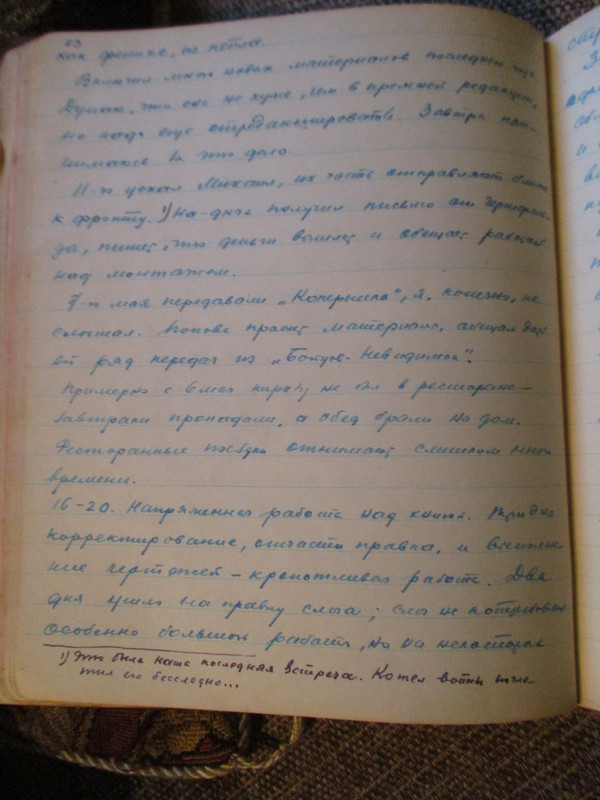 как феникс, из пепла.
Включил много новых материалов последнего
Думаю, что она не хуже, чем в прежней редакции,
но надо еще отредактировать. Завтра при-
нимаюсь за это дело.
11-го уехал Михаил, их часть отправляют ближе
к фронту.¹) На-днях получил письмо от
да, пишет, что деньги вышлет и обещает работать
над монтажом.
7-го мая передавали „Коперника", я, конечно, не
слышал. Попова просит материалов, обещал дать
ей ряд передач из „Бойцов-Невидимок".
Примерно с 6 мая ни разу не был в ресторане –
завтраки пропадали, а обед брали на дом.
Ресторанные поездки отнимают слишком много
времени.
16-20. Напряженная работа над книгой.
корректирование, отчасти правка, и выполне-
ние чертежей – кропотливая работа. Два
дня ушло на правку слога; слог не потребовал
особенно большой работы, но на некоторые
¹) Это была наша последняя встреча. Котел войны погло-
тил его бесследно...